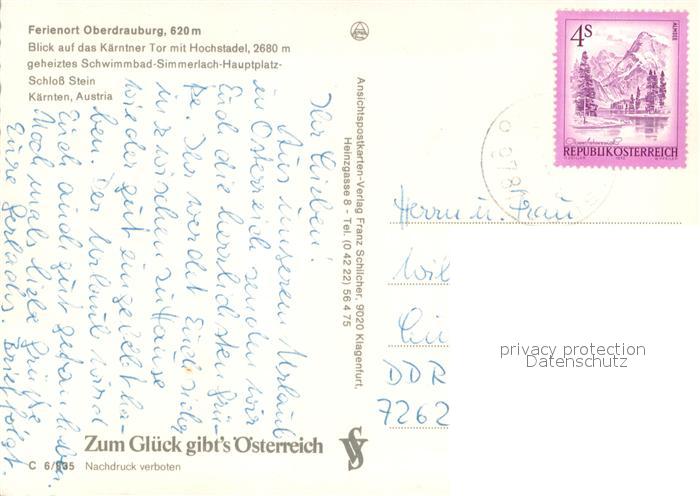 Ferienort Oberdrauburg, 620 m
Blick auf das Kärntner Tor mit Hochstadel, 2680 m
geheiztes Schwimmbad-Simmerlach-Hauptplatz-
Schloß Stein
Kärnten, Austria
Ihr Lieben!
Aus unserem Urlaub
in Österreich senden wir
Euch die herzlichsten Grü-
ße. Ihr werdet Euch sicher
inzwischen zu Hause
wieder gut eingelebt ha-
ben. Der Urlaub wird
Euch auch gut getan haben.
Nochmals liebe Grüße
Eure Gerladis. Brief folgt.
Zum Glück gibt's Österreich
C 6/935 Nachdruck verboten
Ansichtspostkarten-Verlag Franz Schilcher, 9020 Klagenfurt,
Heinzgasse 8 - Tel. (0 42 22) 56 4 75
4S
ALMSEE
REPUBLIK ÖSTERREICH
Herrn u. Frau
Wil
DDR
7262
privacy protection
Datenschutz